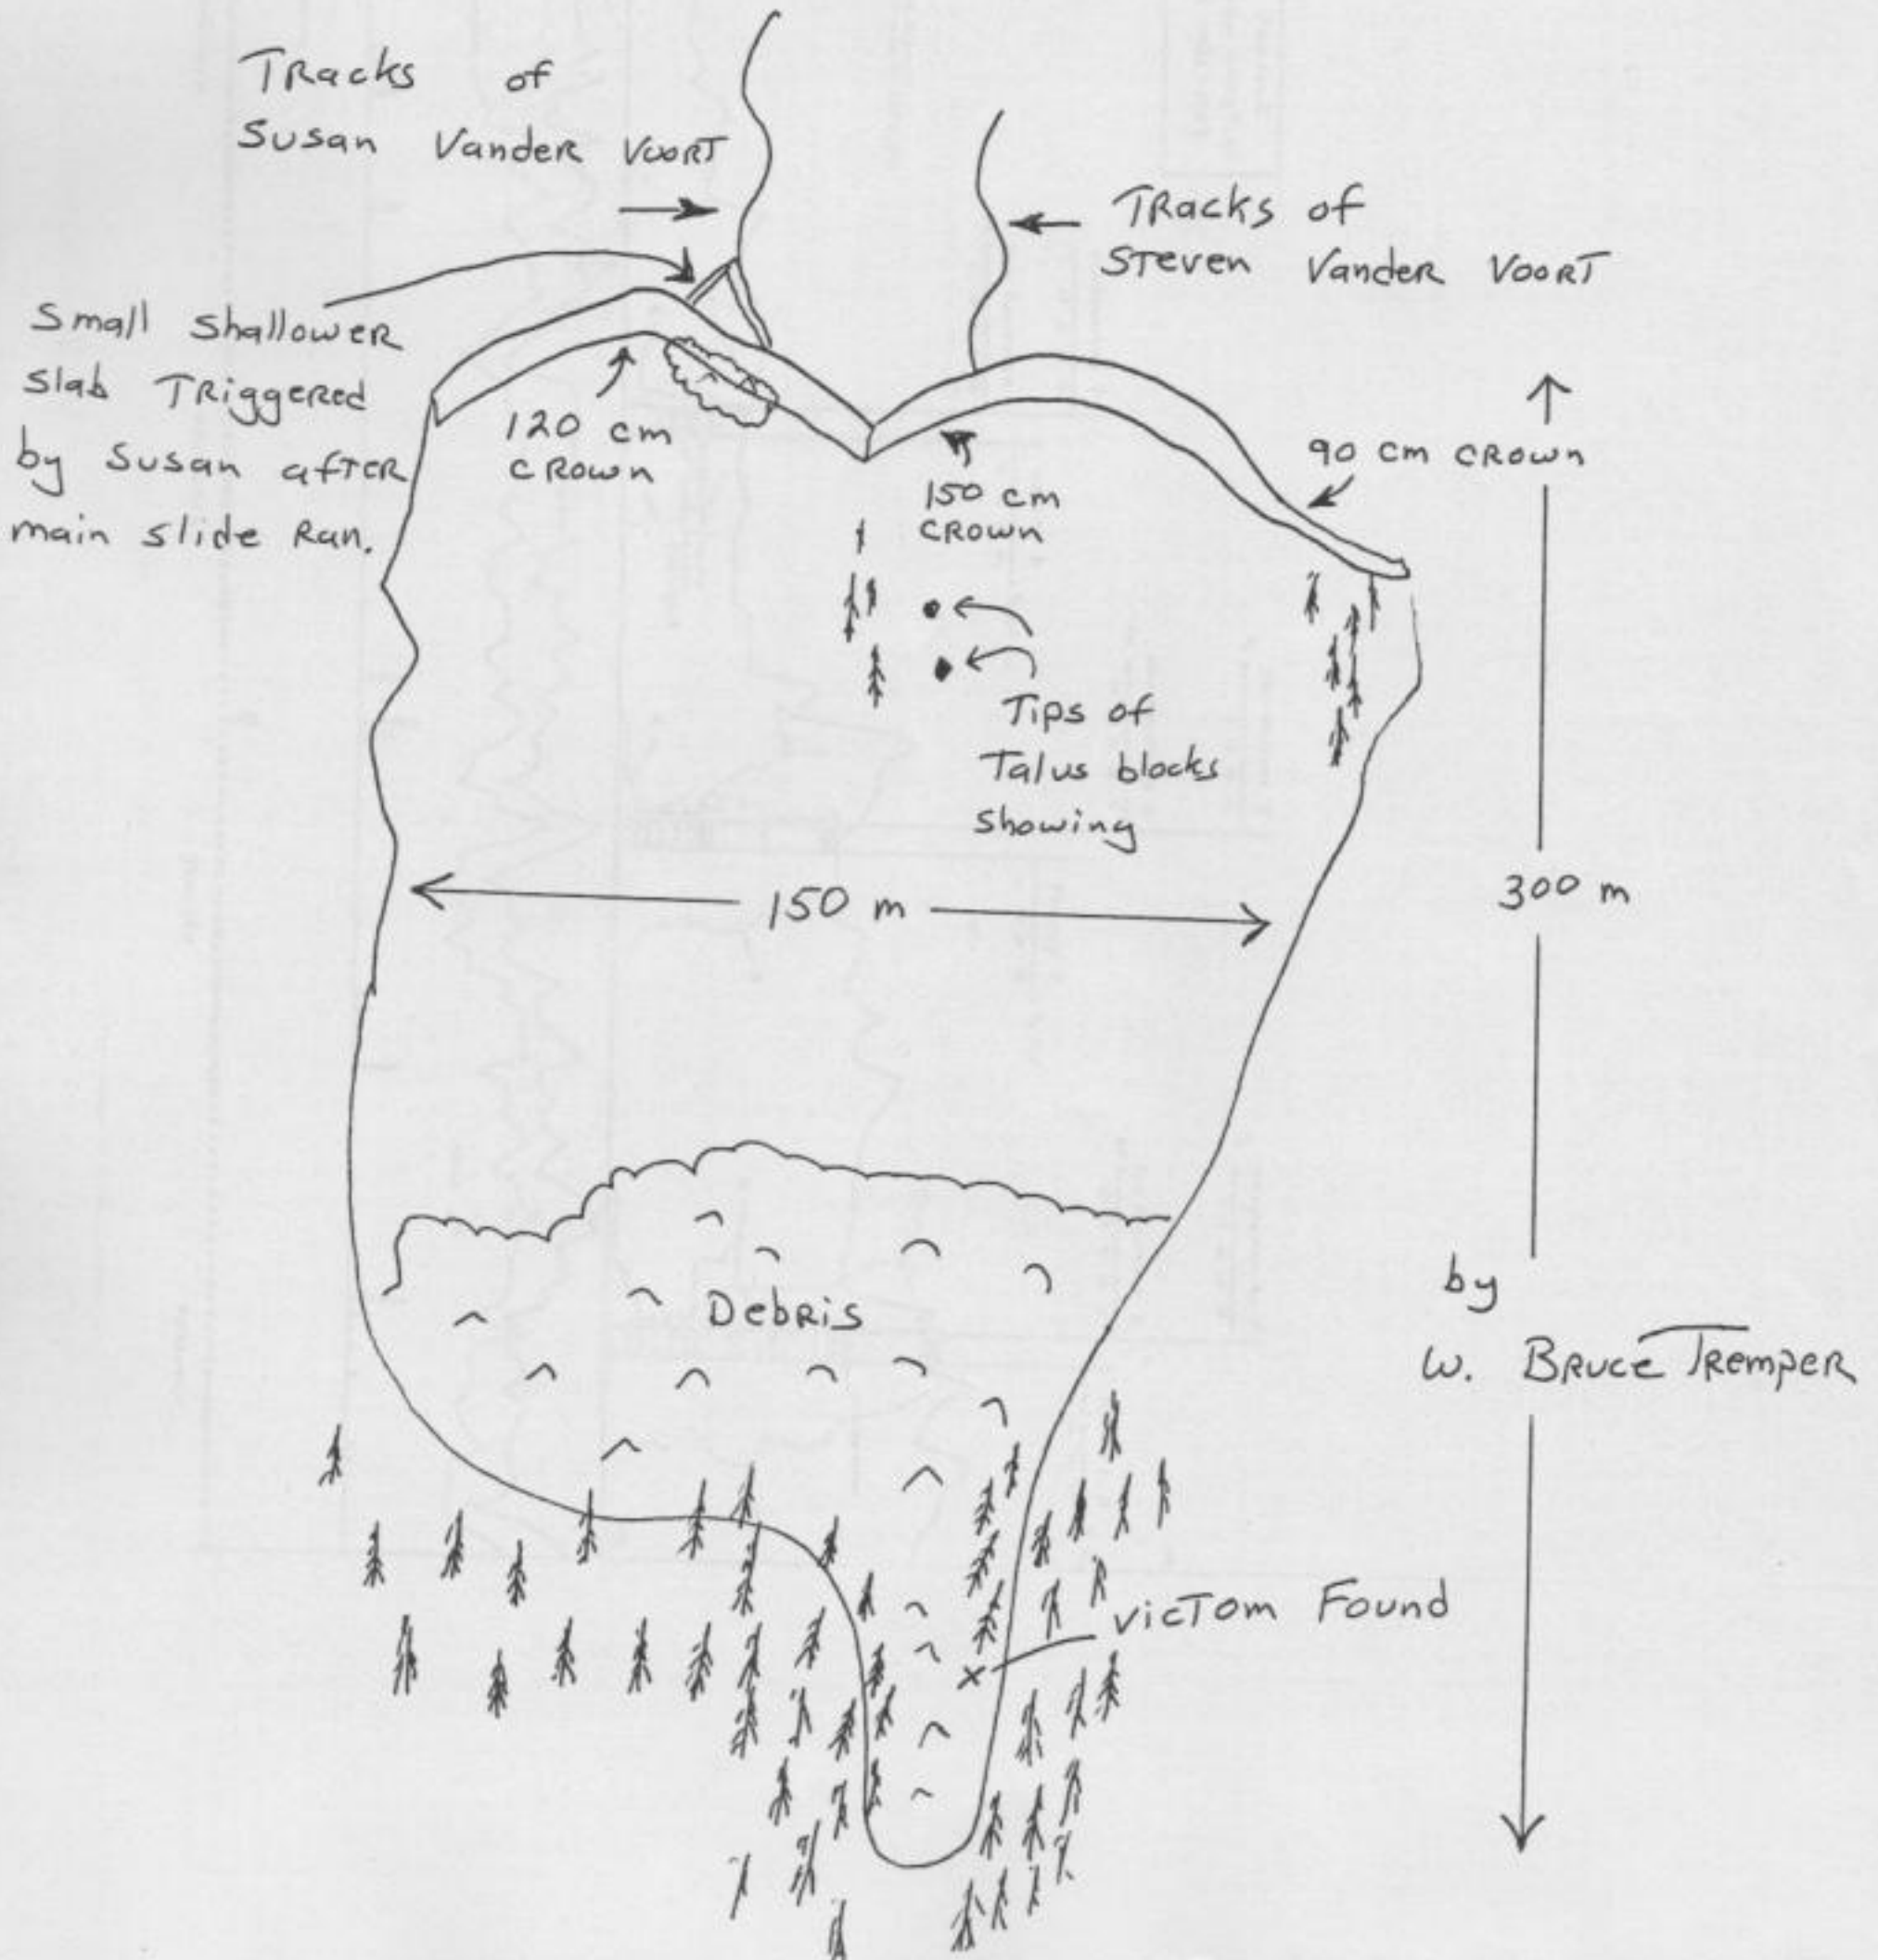 Tracks of
Susan Vander Voort
Tracks of
Steven Vander Voort
Small Shallower
slab Triggered
by Susan after
main slide Ran.
120 cm
crown
150 cm
crown
90 cm crown
Tips of
Talus blocks
showing
150 m
300 m
Debris
by
W. Bruce Tremper
victom Found